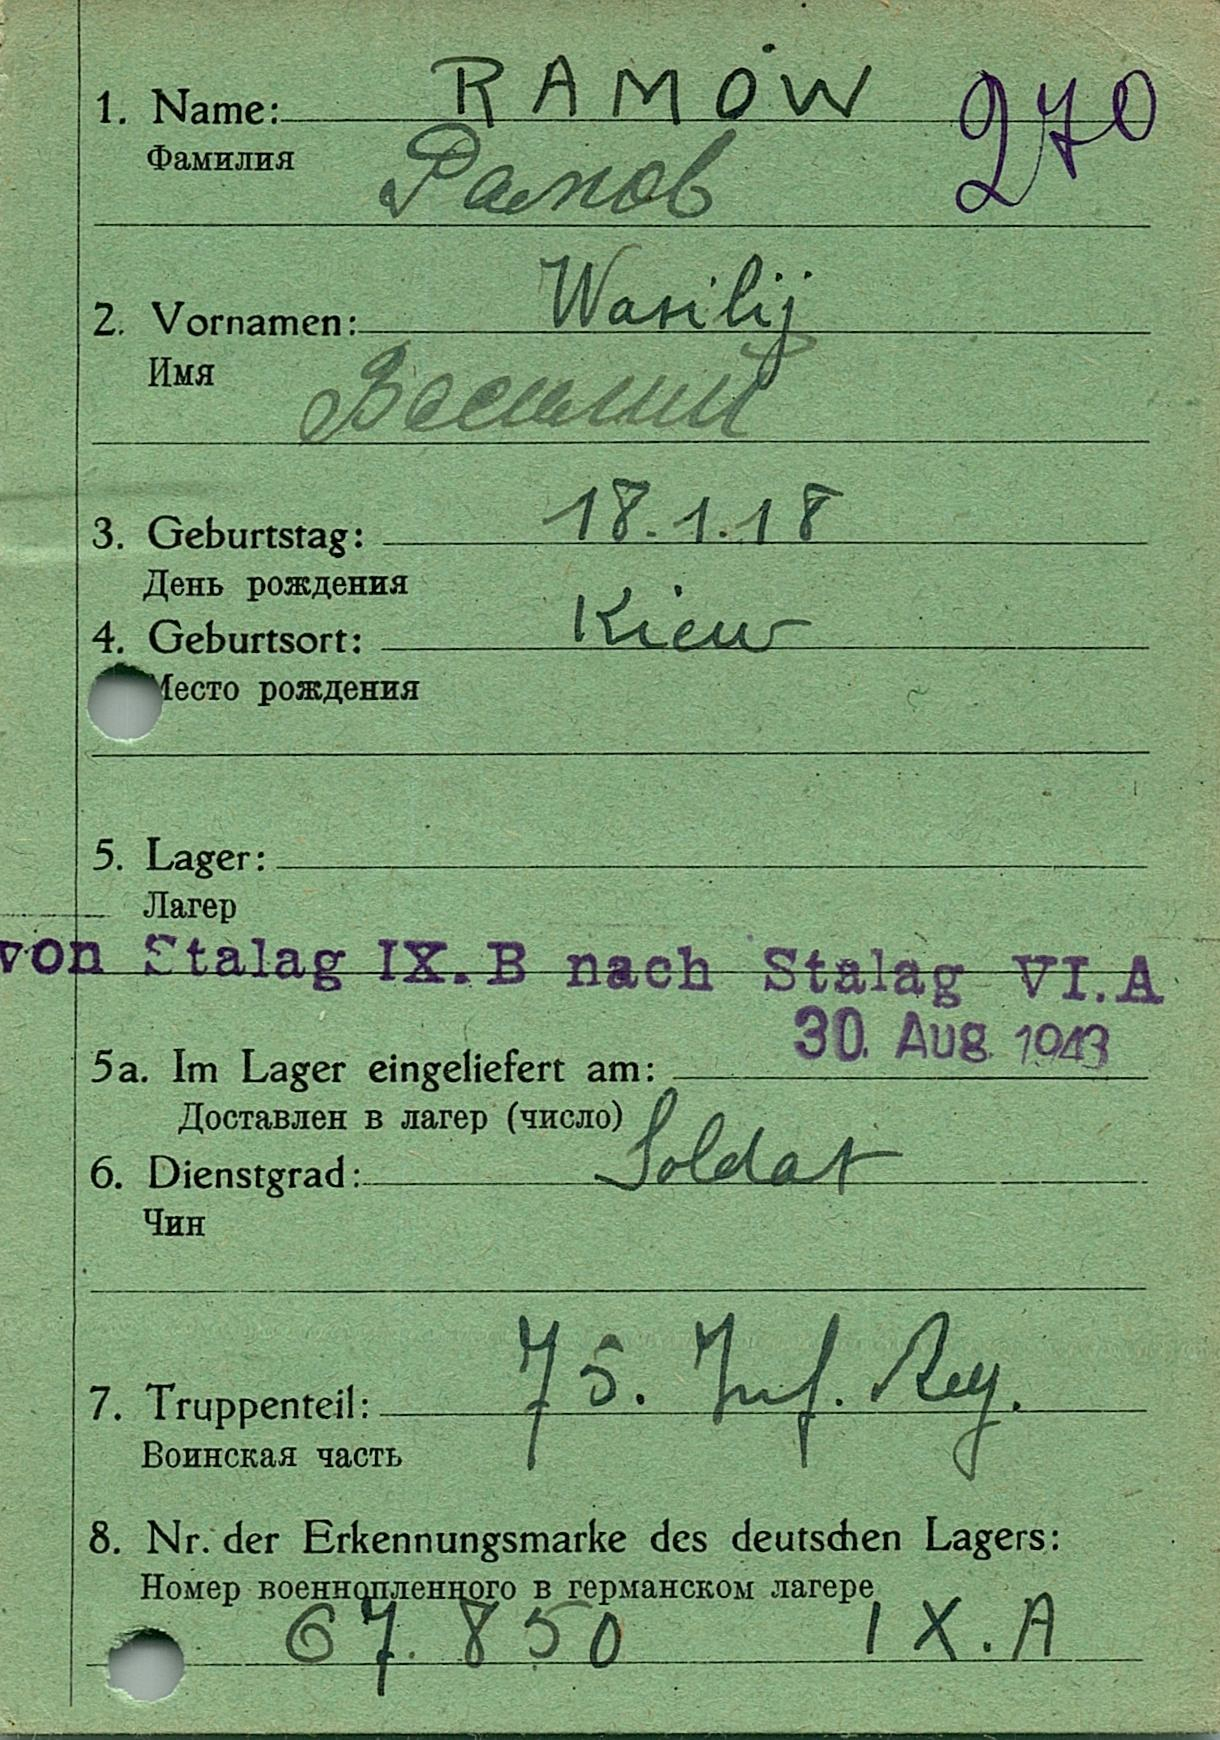 1. Name: RAMOW 270
Фамилия
Рамов
2. Vornamen: Wasilij
Имя
Василий
3. Geburtstag: 18.1.18
День рождения
4. Geburtsort: Kiew
Место рождения
5. Lager:
Лагер
von Stalag IX.B nach Stalag VI.A
30. Aug. 1943
5a. Im Lager eingeliefert am:
Доставлен в лагер (число)
6. Dienstgrad: Soldat
Чин
7. Truppenteil: 75. Inf. Reg.
Воинская часть
8. Nr. der Erkennungsmarke des deutschen Lagers:
Номер военнопленного в германском лагере
67.850 IX.A